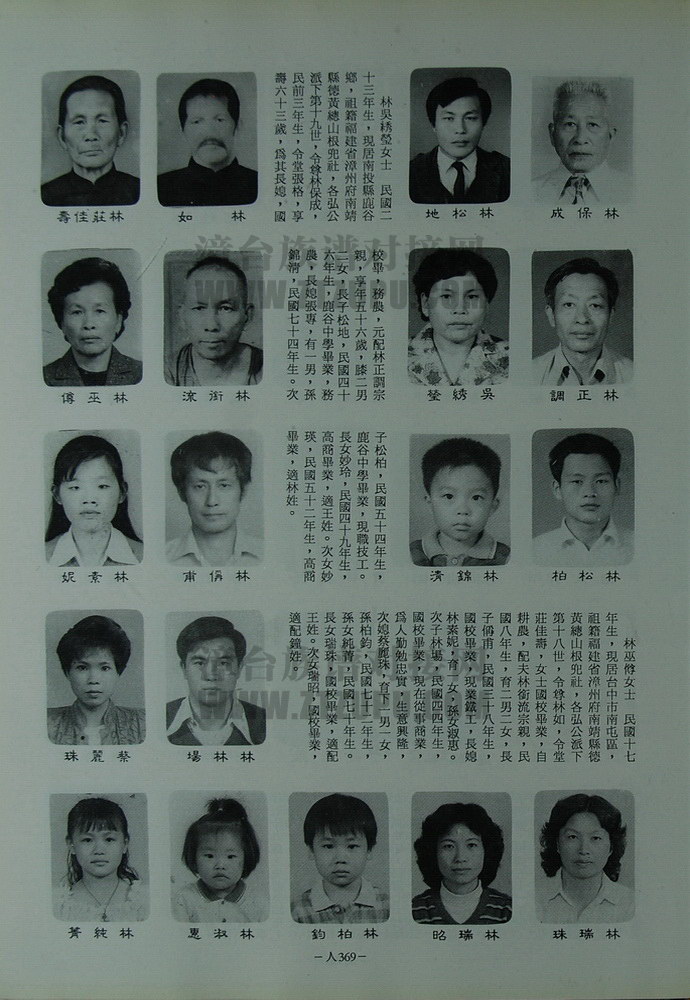 林吳綉瑩女士　民國二
十三年生，現居南投縣鹿谷
鄉，祖籍福建省漳州府南靖
縣德黃總山根兜社，各弘公
派下第十九世，令尊林保成，
民前三年生，令堂張格，享
壽六十三歲，爲其長媳，國
校畢，務農，元配林正調宗
親，享年五十六歲，膝二男
二女，長子松地，民國四十
六年生，鹿谷中學畢業，務
農，長媳張專，有一男，孫
錦清，民國七十四年生。次
子松柏，民國五十四年生，
鹿谷中學畢業，現職技工。
長女妙玲，民國四十九年生，
高商畢業，適王姓。次女妙
瑛，民國五十二年生，高商
畢業，適林姓。
林保成
林松地
林　如
林莊佳壽
林正調
吳綉瑩
林銜流
林巫傳
林松柏
林錦清
林傋甫
林素妮
林巫傳女士　民國十七
年生，現居台中市南屯區，
祖籍福建省漳州府南靖縣德
黃總山根兜社，各弘公派下
第十八世，令尊林如，令堂
莊佳壽，女士國校畢業，自
耕農，配夫林銜流宗親，民
國八年生，育二男二女，長
子傋甫，民國三十八年生，
國校畢業，現業鐵工，長媳
林素妮，育一女，孫女淑惠。
次子林場，民國四四年生，
國校畢業，現在從事商業，
爲人勤勉忠實，生意興隆，
次媳蔡麗珠，育一男一女，
孫柏鈞，民國七十二年生，
孫女純菁，民國七十年生。
長女瑞珠，國校畢業，適配
王姓。次女瑞昭，國校畢業，
適配鐘姓。
林林場
蔡麗珠
林瑞珠
林瑞昭
林柏鈞
林淑惠
林純菁
－人369－
漳台族谱对接网